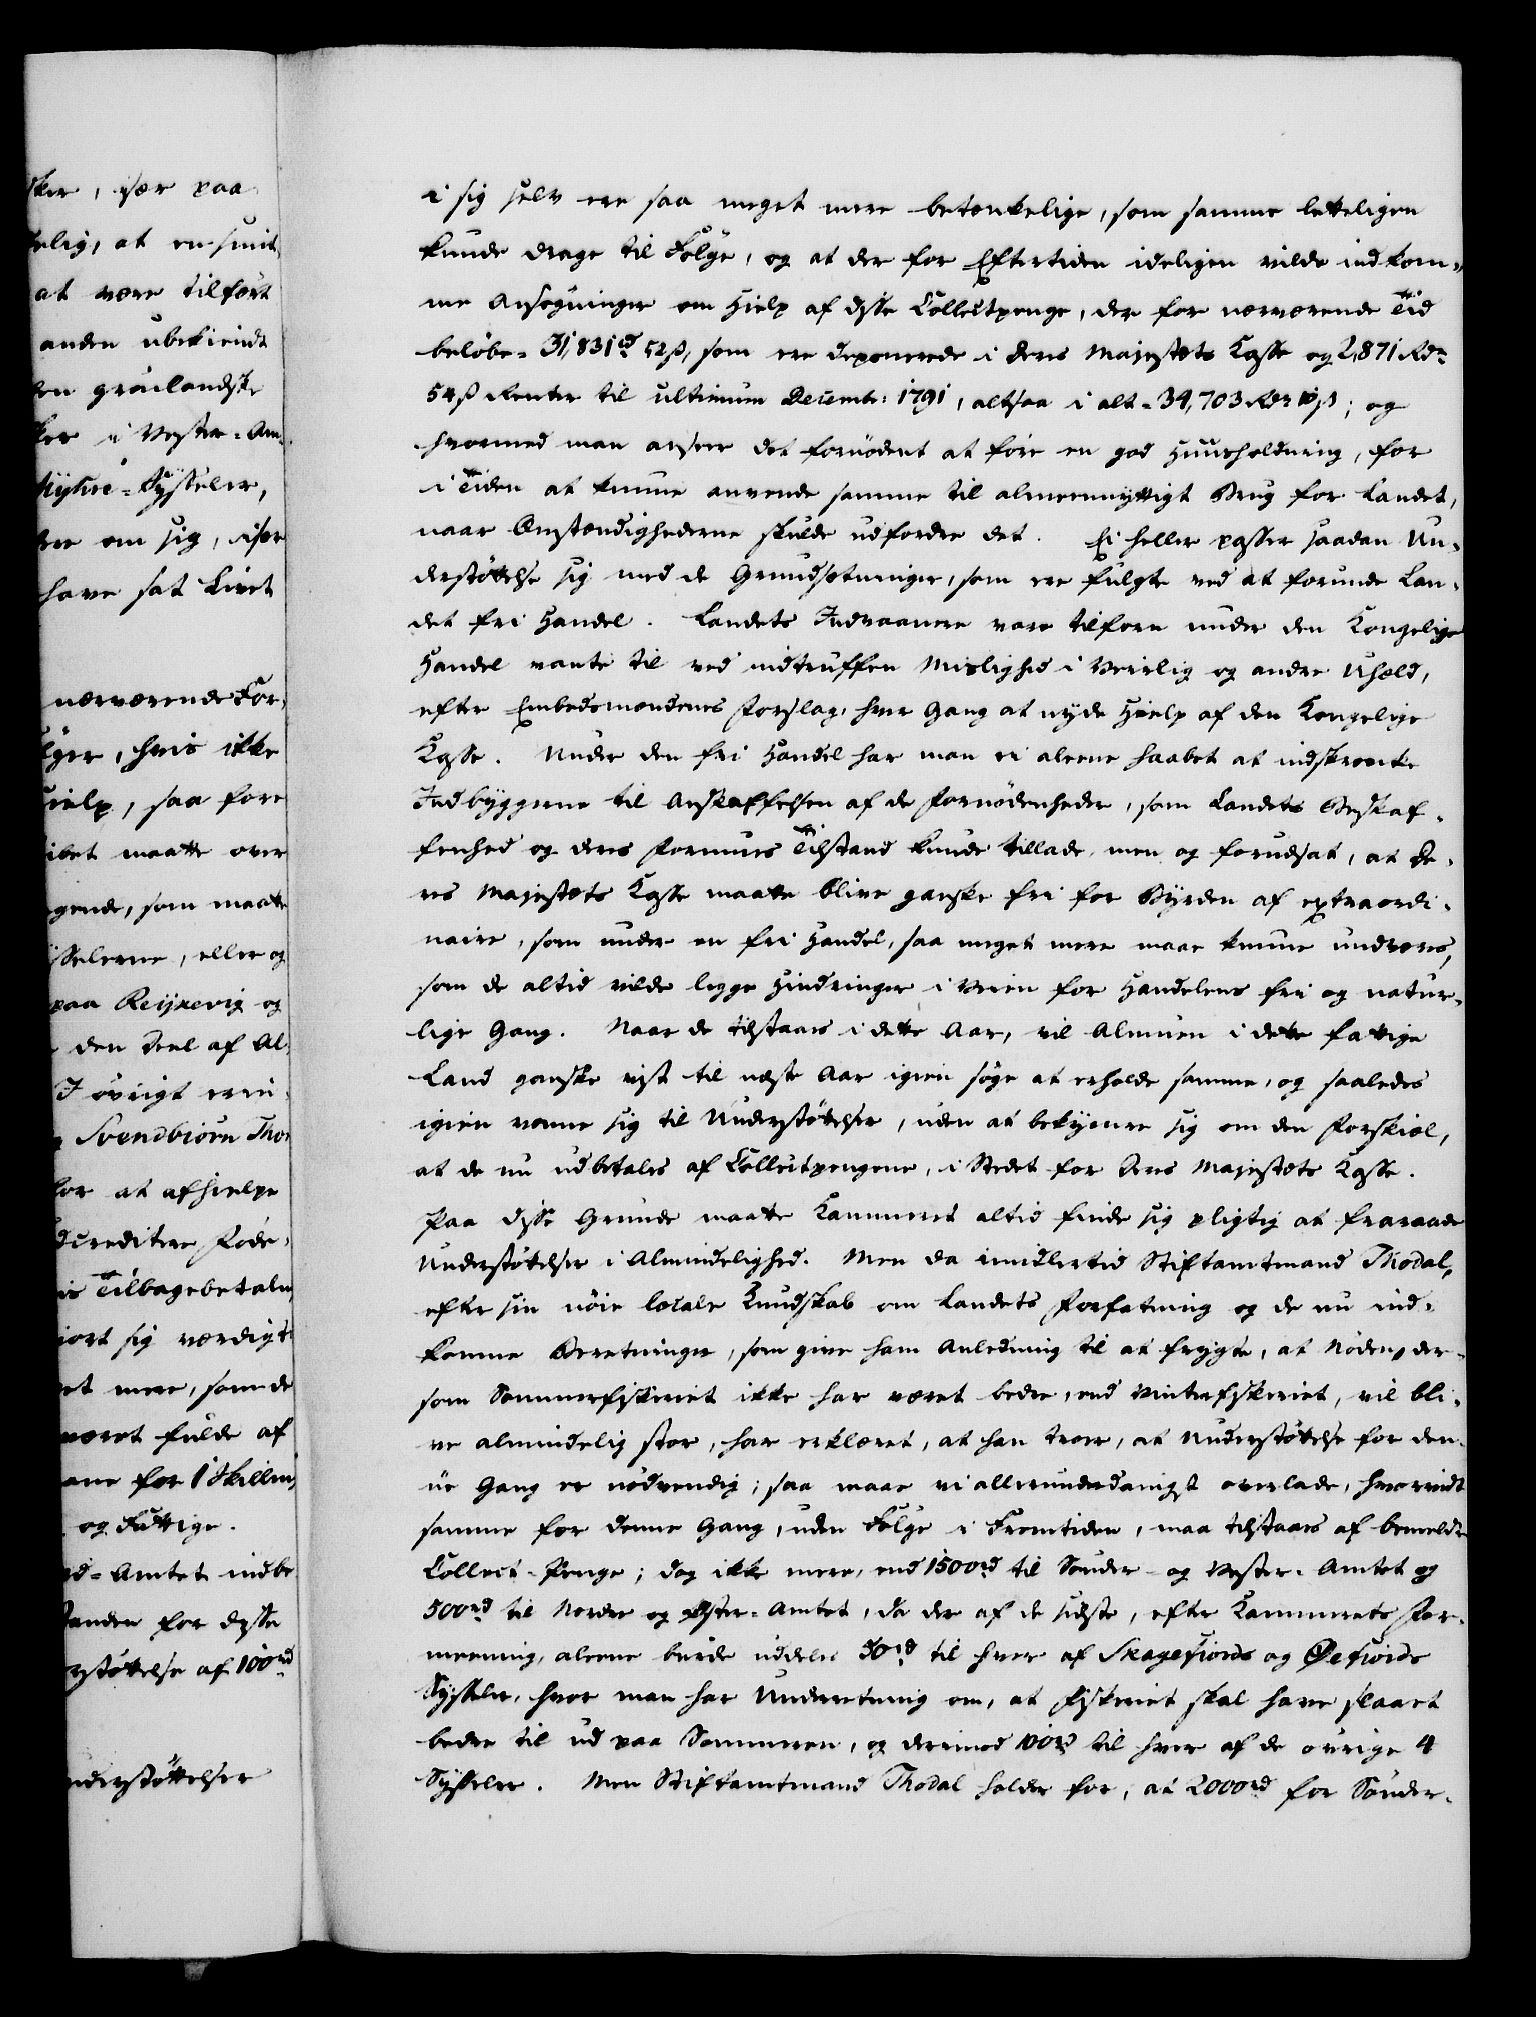 sker, især paa
kelig, at en smit
at være tilført
anden ubekiendt
den grönlandske
ker i Vester-Am
Myhre-Sysseler,
dre om sig, især
have sat Livet
nærværende For-
lger, hvis ikke
Hielp, saa fore
ibet maatte over
gende, som maatte
ysselerne, eller og
paa Reijkevig og
den Deel af Al-
I övrigt erin-
Svendbiörn Thor
for at afhielpe
dcreditere Föde-
is Tilbagebetaln
iort sig værdigt
et mere, som de
været fulde af
ane for 1 Skilling
og Fattige.
d-Amtet indbe
standen for disse
rstöttelse af 100rd
nderstöttelser
i sig selv ere saa meget mere betænkelige, som samme letteligen
kunde drage til Fölge, og at der for Eftertiden ideligen vilde indkom-
me Ansøgninger om Hielp af disse Collectpenge, der for nærværende Tid
belöbe 31,831rd 52ß, som ere deponerede i Deres Majestæts Kasse og 2,871 Rdr
54ß Renter til ultimum Decembr: 1791, altsaa i alt 34,703 Rdr 10ß; og
hvormed man anseer det fornödent at före en god Huusholdning, for
i Tiden at kunne anvende samme til almeennyttigt Brug for Landet,
naar Omstændighederne skulde udfordre det. Ei heller passer saadan Un-
derstöttelse sig med de Grundsætninger, som ere fulgte ved at forunde Lan-
det fri Handel. Landets Indvaanere vare tilforn under den Kongelige
Handel vante til ved indtruffen Mislighed i Veirlig og andre Uheld,
efter Embedsmændenes Forslag, hver Gang at nyde Hielp af den Kongelige
Kasse. Under den fri Handel har man ei aleene haabet at indskrænke
Indbyggerne til Anskaffelsen af de Fornödenheder, som Landets Beskaf-
fenhed og deres Formues Tilstand kunde tillade, men og forudsat, at De-
res Majestæts Kasse maatte blive ganske fri for Byrden af extraordi-
naire, som under en fri Handel, saa meget mere maae kunne undværes,
som de altid vilde legge Hindringer i Veien for Handelens fri og natur-
lige Gang. Naar de tilstaaes i dette Aar, vil Almuen i dette fattige
Land ganske vist til næste Aar igien söge at erholde samme, og saaledes
igien vænne sig til Understöttelser, uden at bekymre sig om den Forskiel,
at de nu udbetales af Collectpengene, i Stedet for Deres Majestæts Kasse.
Paa disse Grunde maatte Kammeret altid finde sig pligtig at fraraade
Understöttelser i Almindelighed. Men da imidlertid Stiftamtmand Thodal,
efter sin nöie locale Kundskab om Landets Forfatning og de nu ind-
komne Beretninger, som give ham Anledning til at frygte, at Nöden, der-
som Sommerfiskeriet ikke har været bedre, end Vinterfiskeriet, vil bli-
ve almindelig stor, har erklæret, at han troer, at Understöttelse for den-
ne Gang er nödvendig; saa maae vi allerunderdanigst overlade, hvorvidt
samme for denne Gang, uden Fölge i Fremtiden, maa tilstaaes af bemeldte
Collect-Penge; dog ikke mere, end 1500rd til Sönder- og Vester-Amtet og
500rd til Norder og Öster-Amtet, da der af de sidste, efter Kammerets For-
meening, aleene burde uddeles 50rd til hver af Skagefiords og Øefiords
Sysseler, hvor man har Underretning om, at Fiskeriet skal have slaaet
bedre til ud paa Sommeren, og derimod 100rd til hver af de övrige 4
Sysseler. Men Stiftamtmand Thodal holder for, at 2000rd for Sönder-